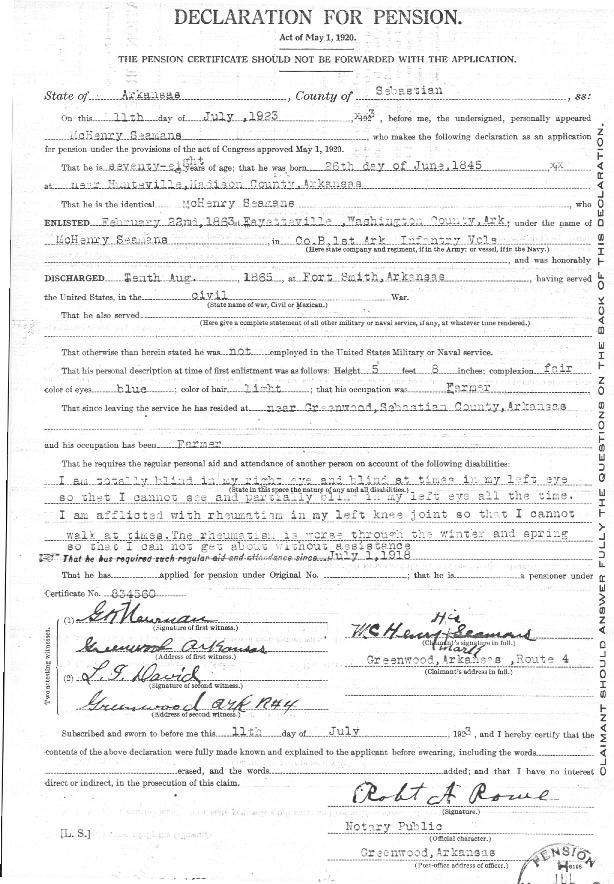 DECLARATION FOR PENSION.
Act of May 1, 1920.
THE PENSION CERTIFICATE SHOULD NOT BE FORWARDED WITH THE APPLICATION.
State of Arkansas, County of Sebastian, ss:
On this 11th day of July, 1923, 1923, before me, the undersigned, personally appeared
McHenry Seamans, who makes the following declaration as an application
for pension under the provisions of the act of Congress approved May 1, 1920.
That he is seventy-eight years of age; that he was born 26th day of June, 1845
at near Huntsville, Madison County, Arkansas
That he is the identical McHenry Seamans, who
ENLISTED February 22nd, 1863 at Fayetteville, Washington County, Ark; under the name of
McHenry Seamans, in Co.B, 1st Ark Infantry Vols
(Here state company and regiment, if in the Army; or vessel, if in the Navy.)
and was honorably
DISCHARGED Tenth Aug. 1865, at Fort Smith, Arkansas, having served
the United States, in the civil War.
(State name of war, Civil or Mexican.)
That he also served
(Here give a complete statement of all other military or naval service, if any, at whatever time rendered.)
That otherwise than herein stated he was not employed in the United States Military or Naval service.
That his personal description at time of first enlistment was as follows: Height 5 feet 8 inches; complexion fair
color of eyes blue; color of hair light; that his occupation was Farmer
That since leaving the service he has resided at near Greenwood, Sebastian County, Arkansas
and his occupation has been Farmer
That he requires the regular personal aid and attendance of another person on account of the following disabilities:
I am totally blind in my right eye and blind at times in my left eye
(State in this space the nature of any and all disabilities.)
so that I cannot see and partially blind in my left eye all the time.
I am afflicted with rheumatism in my left knee joint so that I cannot
walk at times. The rheumatism is worse through the winter and spring
so that I can not get about without assistance
That he has required such regular aid and attendance since July 1, 1918
That he has applied for pension under Original No. ; that he is a pensioner under
Certificate No. 834560
Two attesting witnesses.
(1) G W Newman
(Signature of first witness.)
Greenwood Arkansas
(Address of first witness.)
(2) L. G. David
(Signature of second witness.)
Greenwood Ark R#4
(Address of second witness.)
His
McHenry Seamans
(Claimant's signature in full.)
mark
Greenwood, Arkansas, Route 4
(Claimant's address in full.)
Subscribed and sworn to before me this 11th day of July, 1923, and I hereby certify that the
contents of the above declaration were fully made known and explained to the applicant before swearing, including the words
erased, and the words added; and that I have no interest
direct or indirect, in the prosecution of this claim.
Robt A Rowe
(Signature.)
[L. S.]
Notary Public
(Official character.)
Greenwood, Arkansas
(Post-office address of officer.)
PENSION
JUL
CLAIMANT SHOULD ANSWER FULLY THE QUESTIONS ON THE BACK OF THIS DECLARATION.